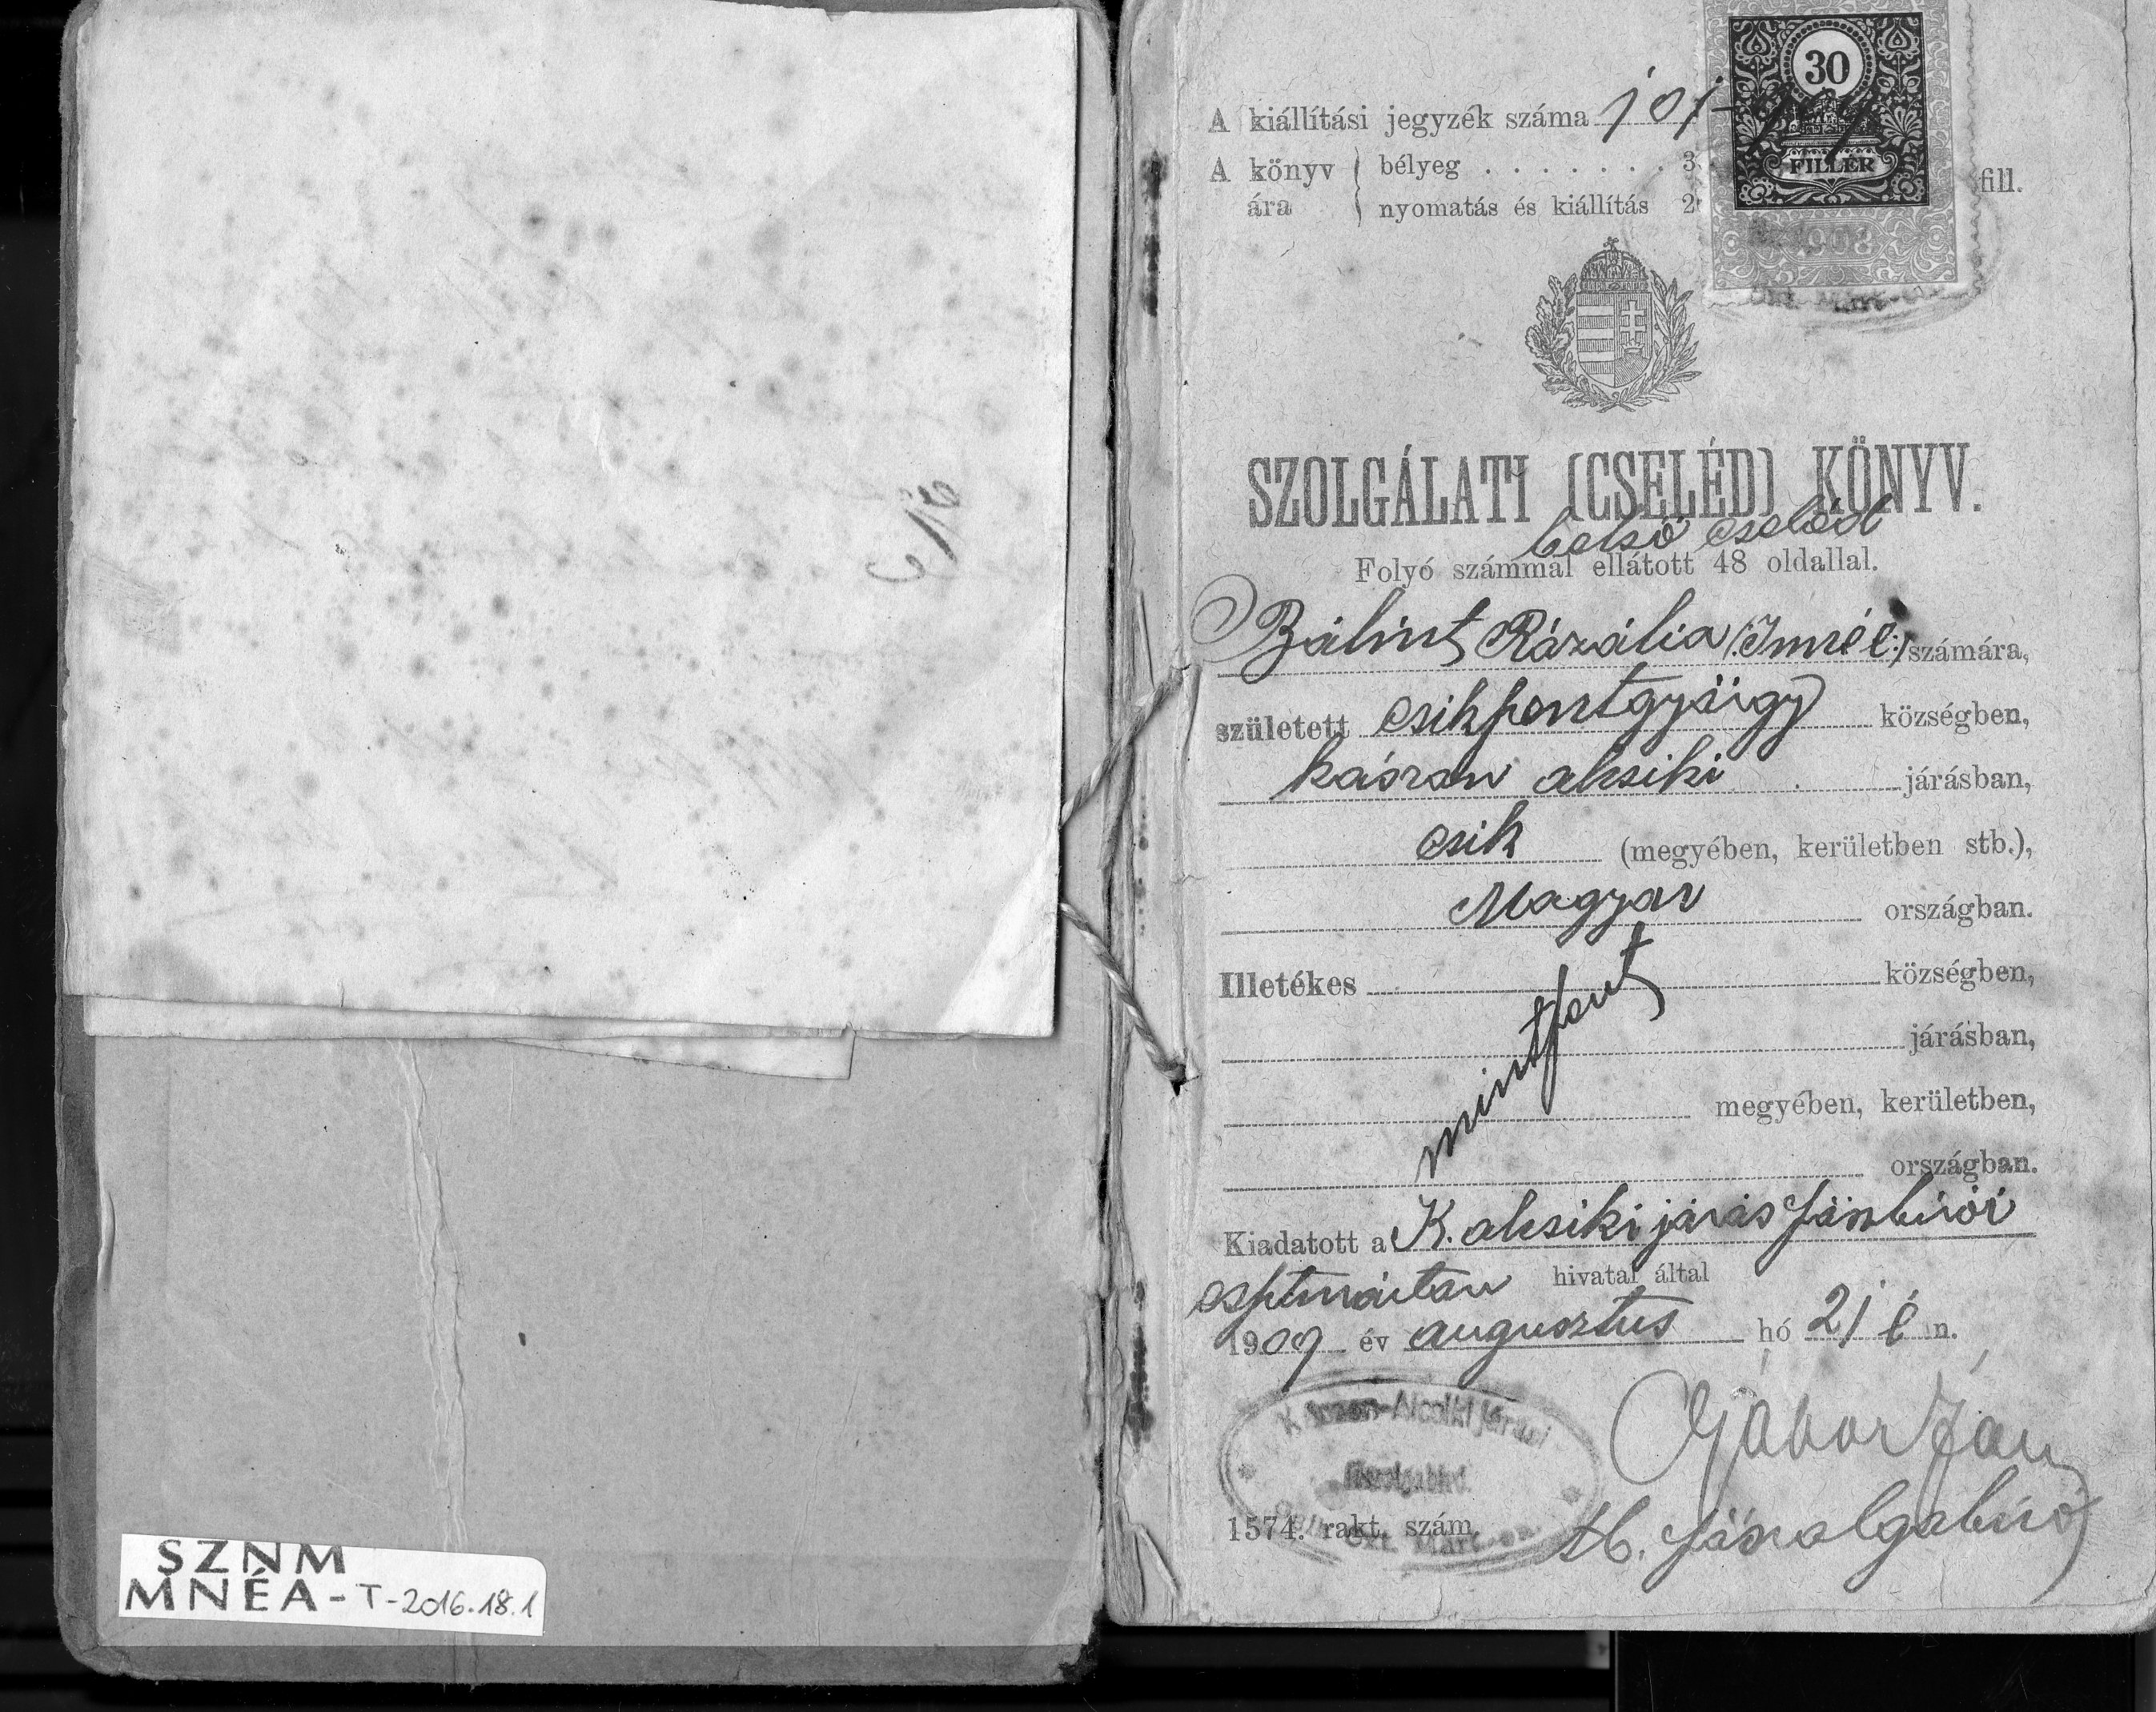 6/16
SZNM
MNÉA-T-2016.18.1
A kiállítási jegyzék száma 101-909
30
FILLÉR
A könyv ára
bélyeg . . . . . . . 3
nyomatás és kiállítás 2
fill.
1908
SZOLGÁLATI (CSELÉD) KÖNYV.
belső cseléd
Folyó számmal ellátott 48 oldallal.
Bálint Rózália (:Imréé:) számára,
született csikszentgyörgy községben,
kászon alcsiki járásban,
csik (megyében, kerületben stb.),
Magyar országban.
Illetékes községben,
mint fent
járásban,
megyében, kerületben,
országban.
Kiadatott a K. alcsiki járás főszbirói
cssztmárton hivatal által
1909 év augusztus hó 21 én.
Kászon-Alcsiki járási
Főszolgabíró
1574. rakt. szám.
Gábor Ján
tb. főszolgabiró